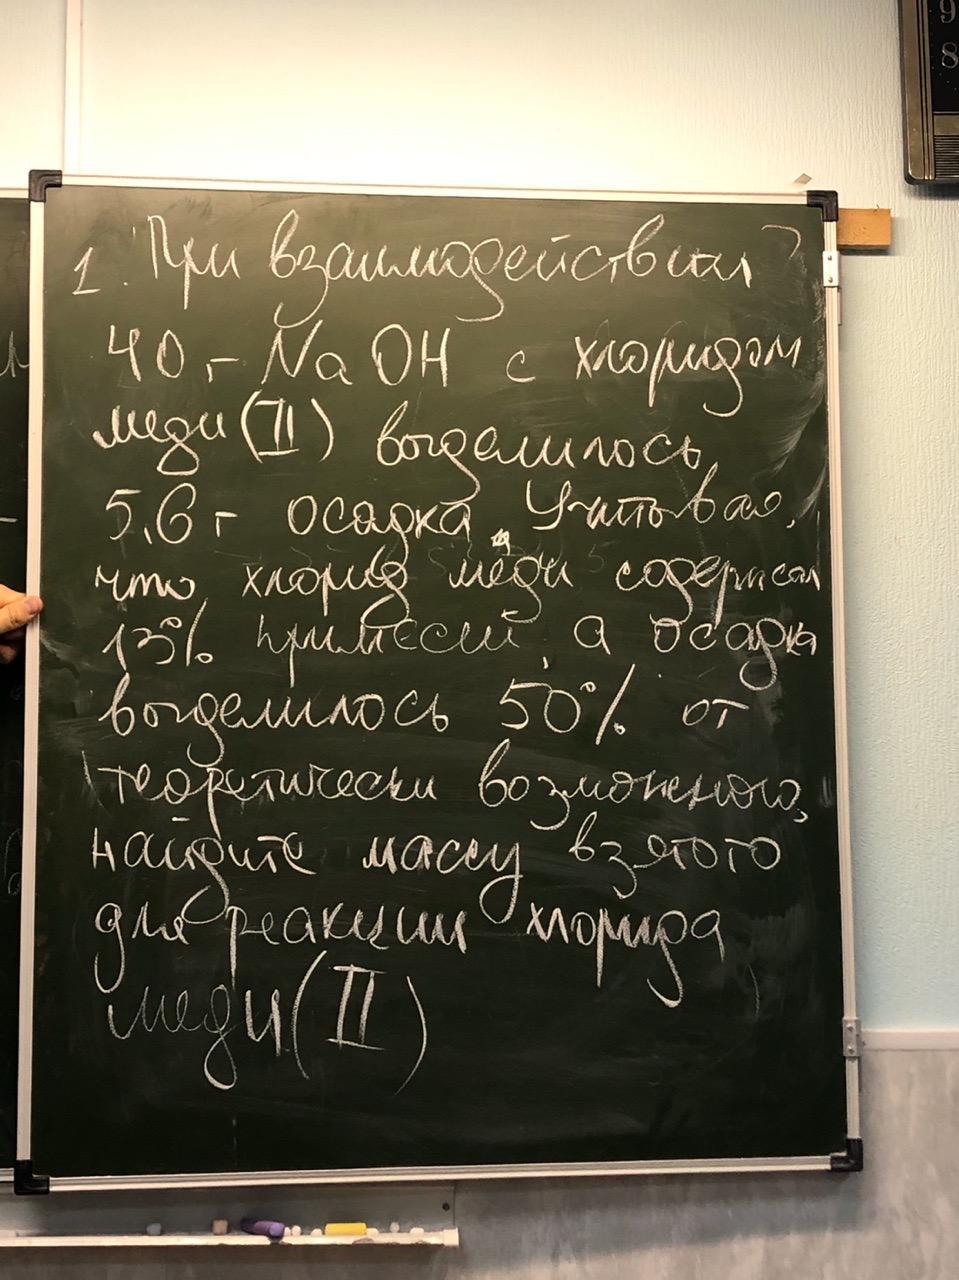 1. При взаимодействии
40 г NaOH с хлоридом
меди (II) выделилось
5,6 г осадка. Учитывая,
что хлорид меди содержал
13% примесей, а осадка
выделилось 50% от
теоретически возможного,
найдите массу взятого
для реакции хлорида
меди (II)
9
8